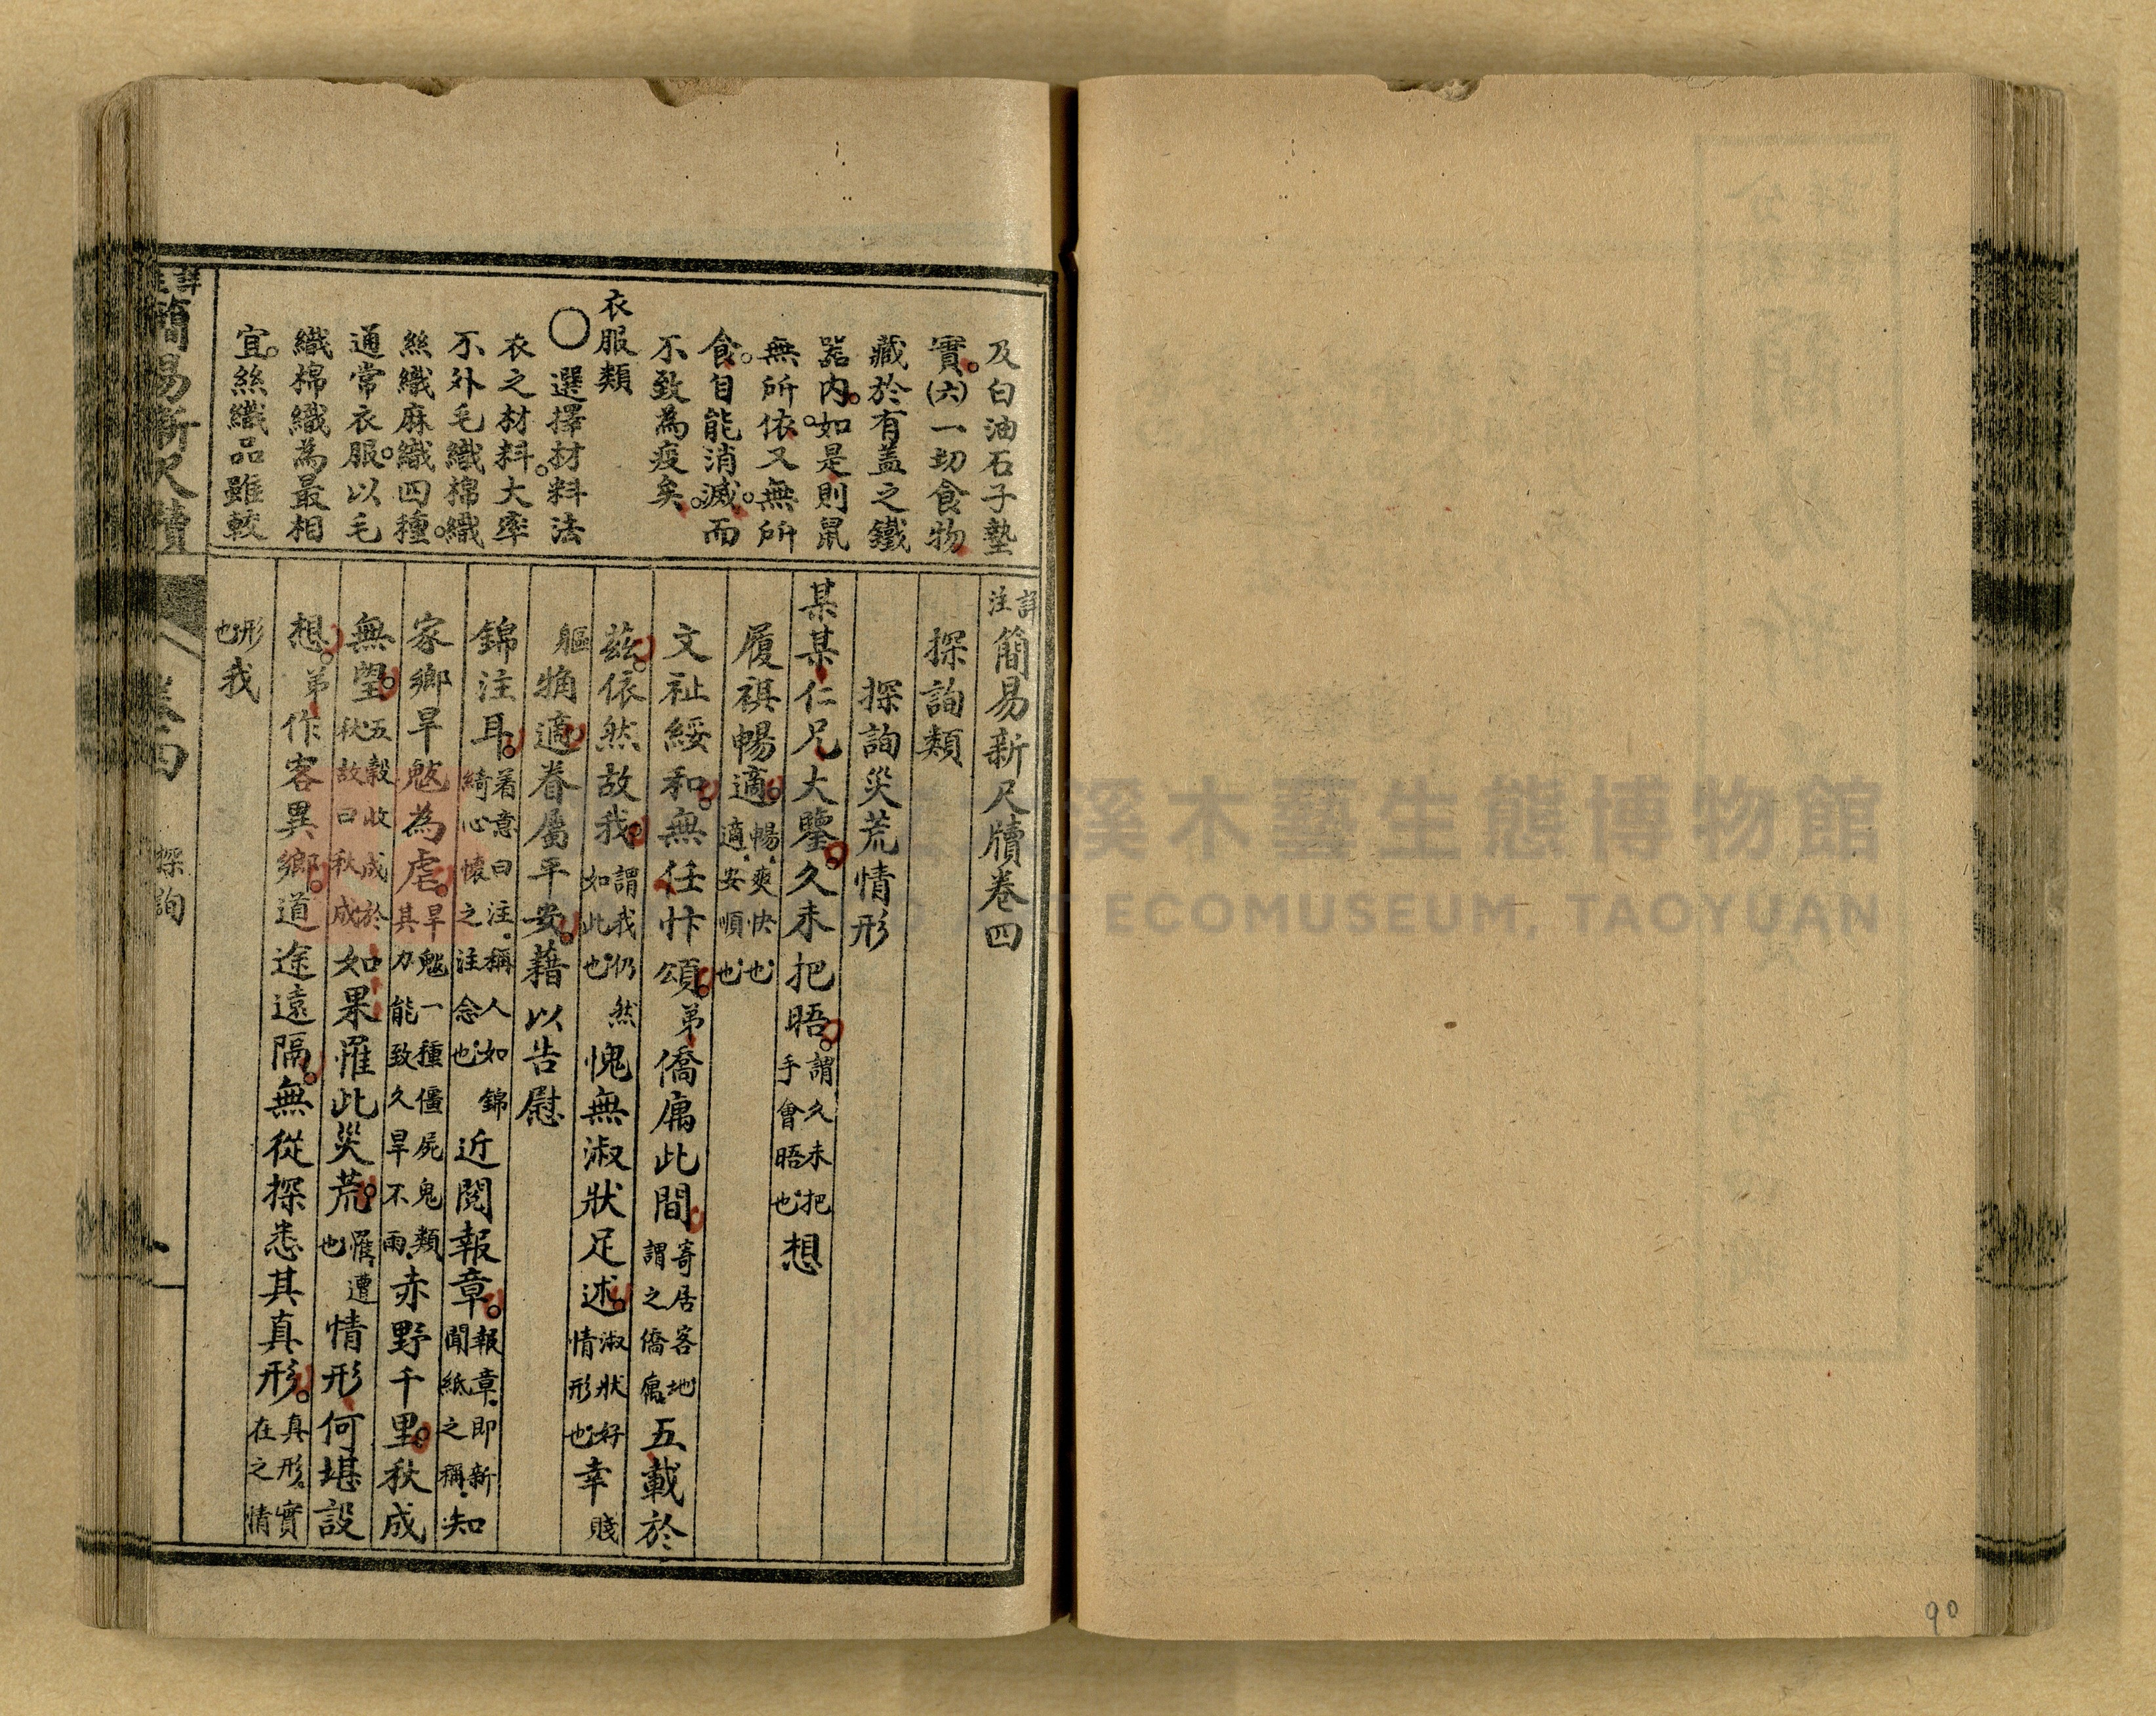 及白油石子墊
實。㈥一切食物
藏於有盖之鐵
器内。如是則鼠
無所依。又無所
食。自能消滅。而
不致為疫矣。
衣服類
〇選擇材料法
衣之材料。大率
不外毛織棉織
絲織麻織四種。
通常衣服。以毛
織棉織為最相
宜。絲織品雖較
詳注簡易新尺牘卷四
探詢類
探詢災荒情形
某某仁兄大鑒。久未把晤。謂久未把手會晤也想
履祺暢適。暢、爽快也適、安順也
文祉綏和。無任忭頌。弟僑寓此間寄居客地謂之僑寓五載於
茲。依然故我。謂我仍然如此也愧無淑狀足述。淑狀好情形也幸賤
軀粗適。眷屬平安。藉以告慰
錦注耳。着意曰注、稱人如錦綺心懷之注念也錦近閱報章。報章、即新聞紙之稱、知
家鄉旱魃為虐。旱魃一種僵屍鬼類其力能致久旱不雨、赤野千里。秋成
無望。五穀收成於秋故曰秋成如果罹此災荒。罹、遭也情形何堪設
想。弟作客異鄉。道途遠隔。無從探悉其真形。真形、實在之情
形也我
詳注簡易新尺牘
卷四
探詢
一
大溪木藝生態博物館
ECOMUSEUM, TAOYUAN
90